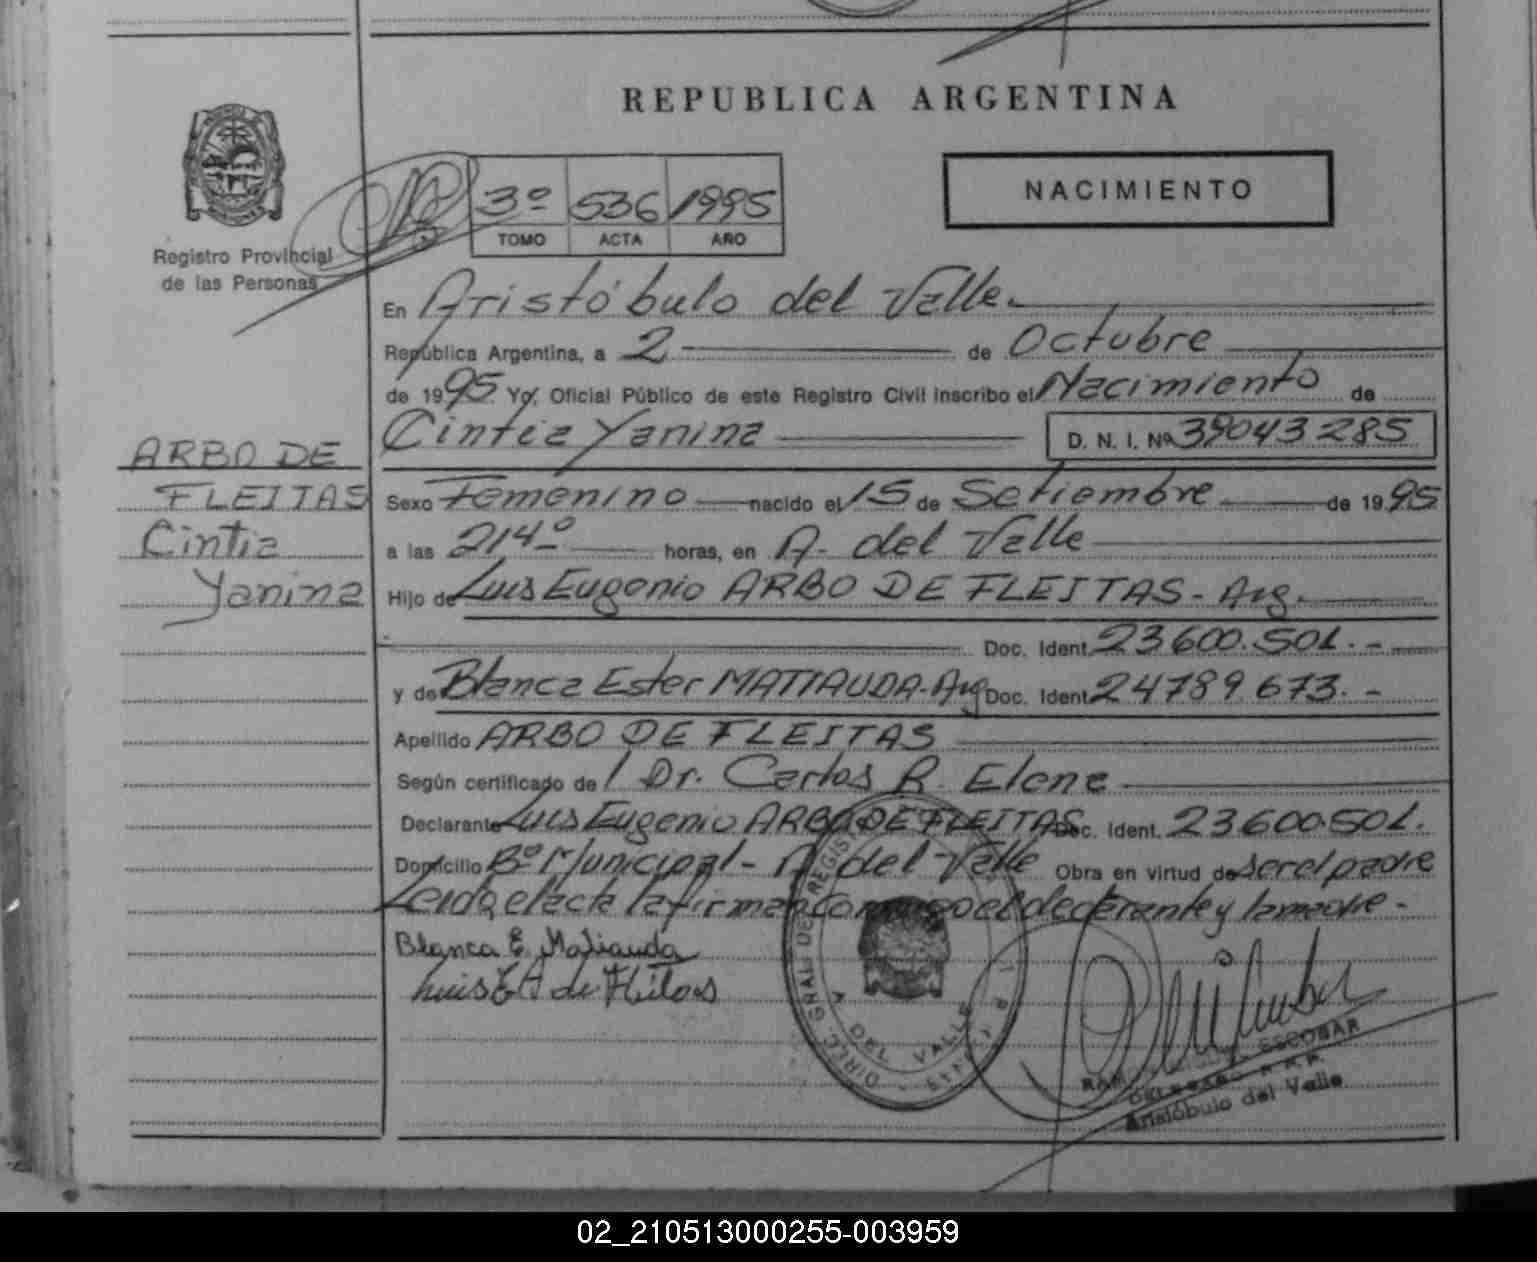 REPUBLICA ARGENTINA
Registro Provincial
de las Personas
3º 536 1995
TOMO ACTA AÑO
NACIMIENTO
En Aristóbulo del Valle.
República Argentina, a 2 de Octubre
de 1995 Yo, Oficial Público de este Registro Civil inscribo el Nacimiento de
Cintia Yanina D. N. I. Nº 39043285
ARBO DE
FLEITAS
Cintia
Yanina
Sexo Femenino nacido el 15 de Setiembre de 1995
a las 21,4º horas, en A. del Valle
Hijo de Luis Eugenio ARBO DE FLEITAS - Arg.
Doc. Ident. 23600.501.-
y de Blanca Ester MATIAUDA-Arg Doc. Ident. 24789.673.-
Apellido ARBO DE FLEITAS
Según certificado de l Dr. Carlos R. Elene
Declarante Luis Eugenio ARBO DE FLEITAS Doc. Ident. 23600.501.
Domicilio Bº Municipal - A. del Valle Obra en virtud de ser el padre
Leida el acta la firman conmigo el declarante y la madre -
Blanca E. Matiauda
Luis E A de Fleitas
DIREC. GRAL. DEL REGISTRO
A DEL VALLE
ESCOBAR
DELEGADO R.P.P.
Aristóbulo del Valle
02_210513000255-003959